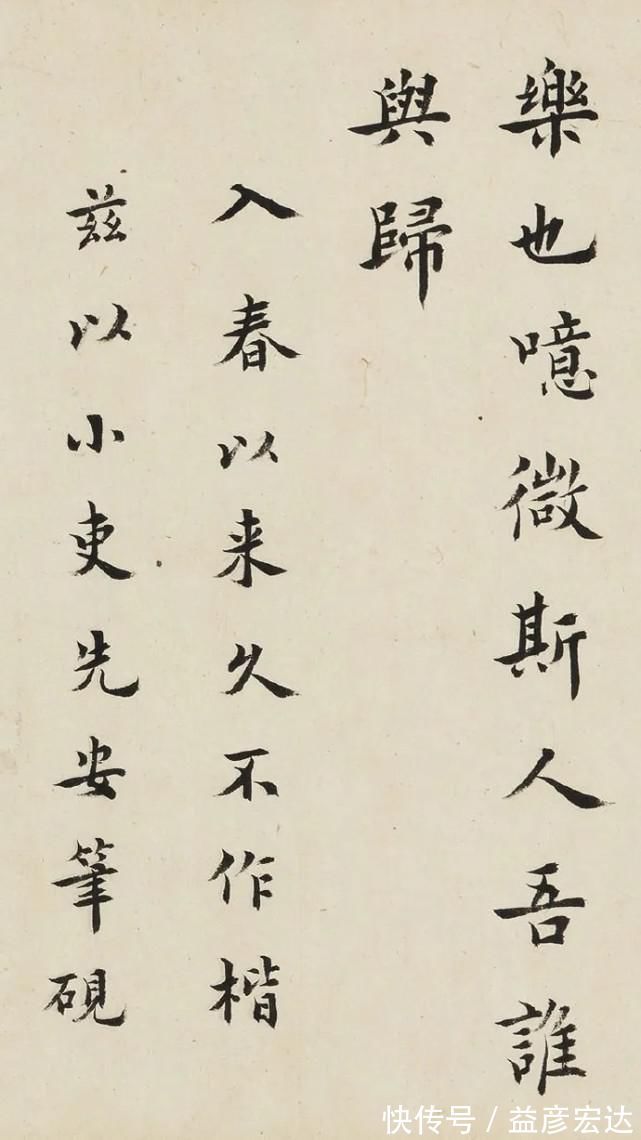 樂也噫微斯人吾誰
與歸
入春以来久不作楷
兹以小吏先安筆硯
快传号 / 益彦宏达